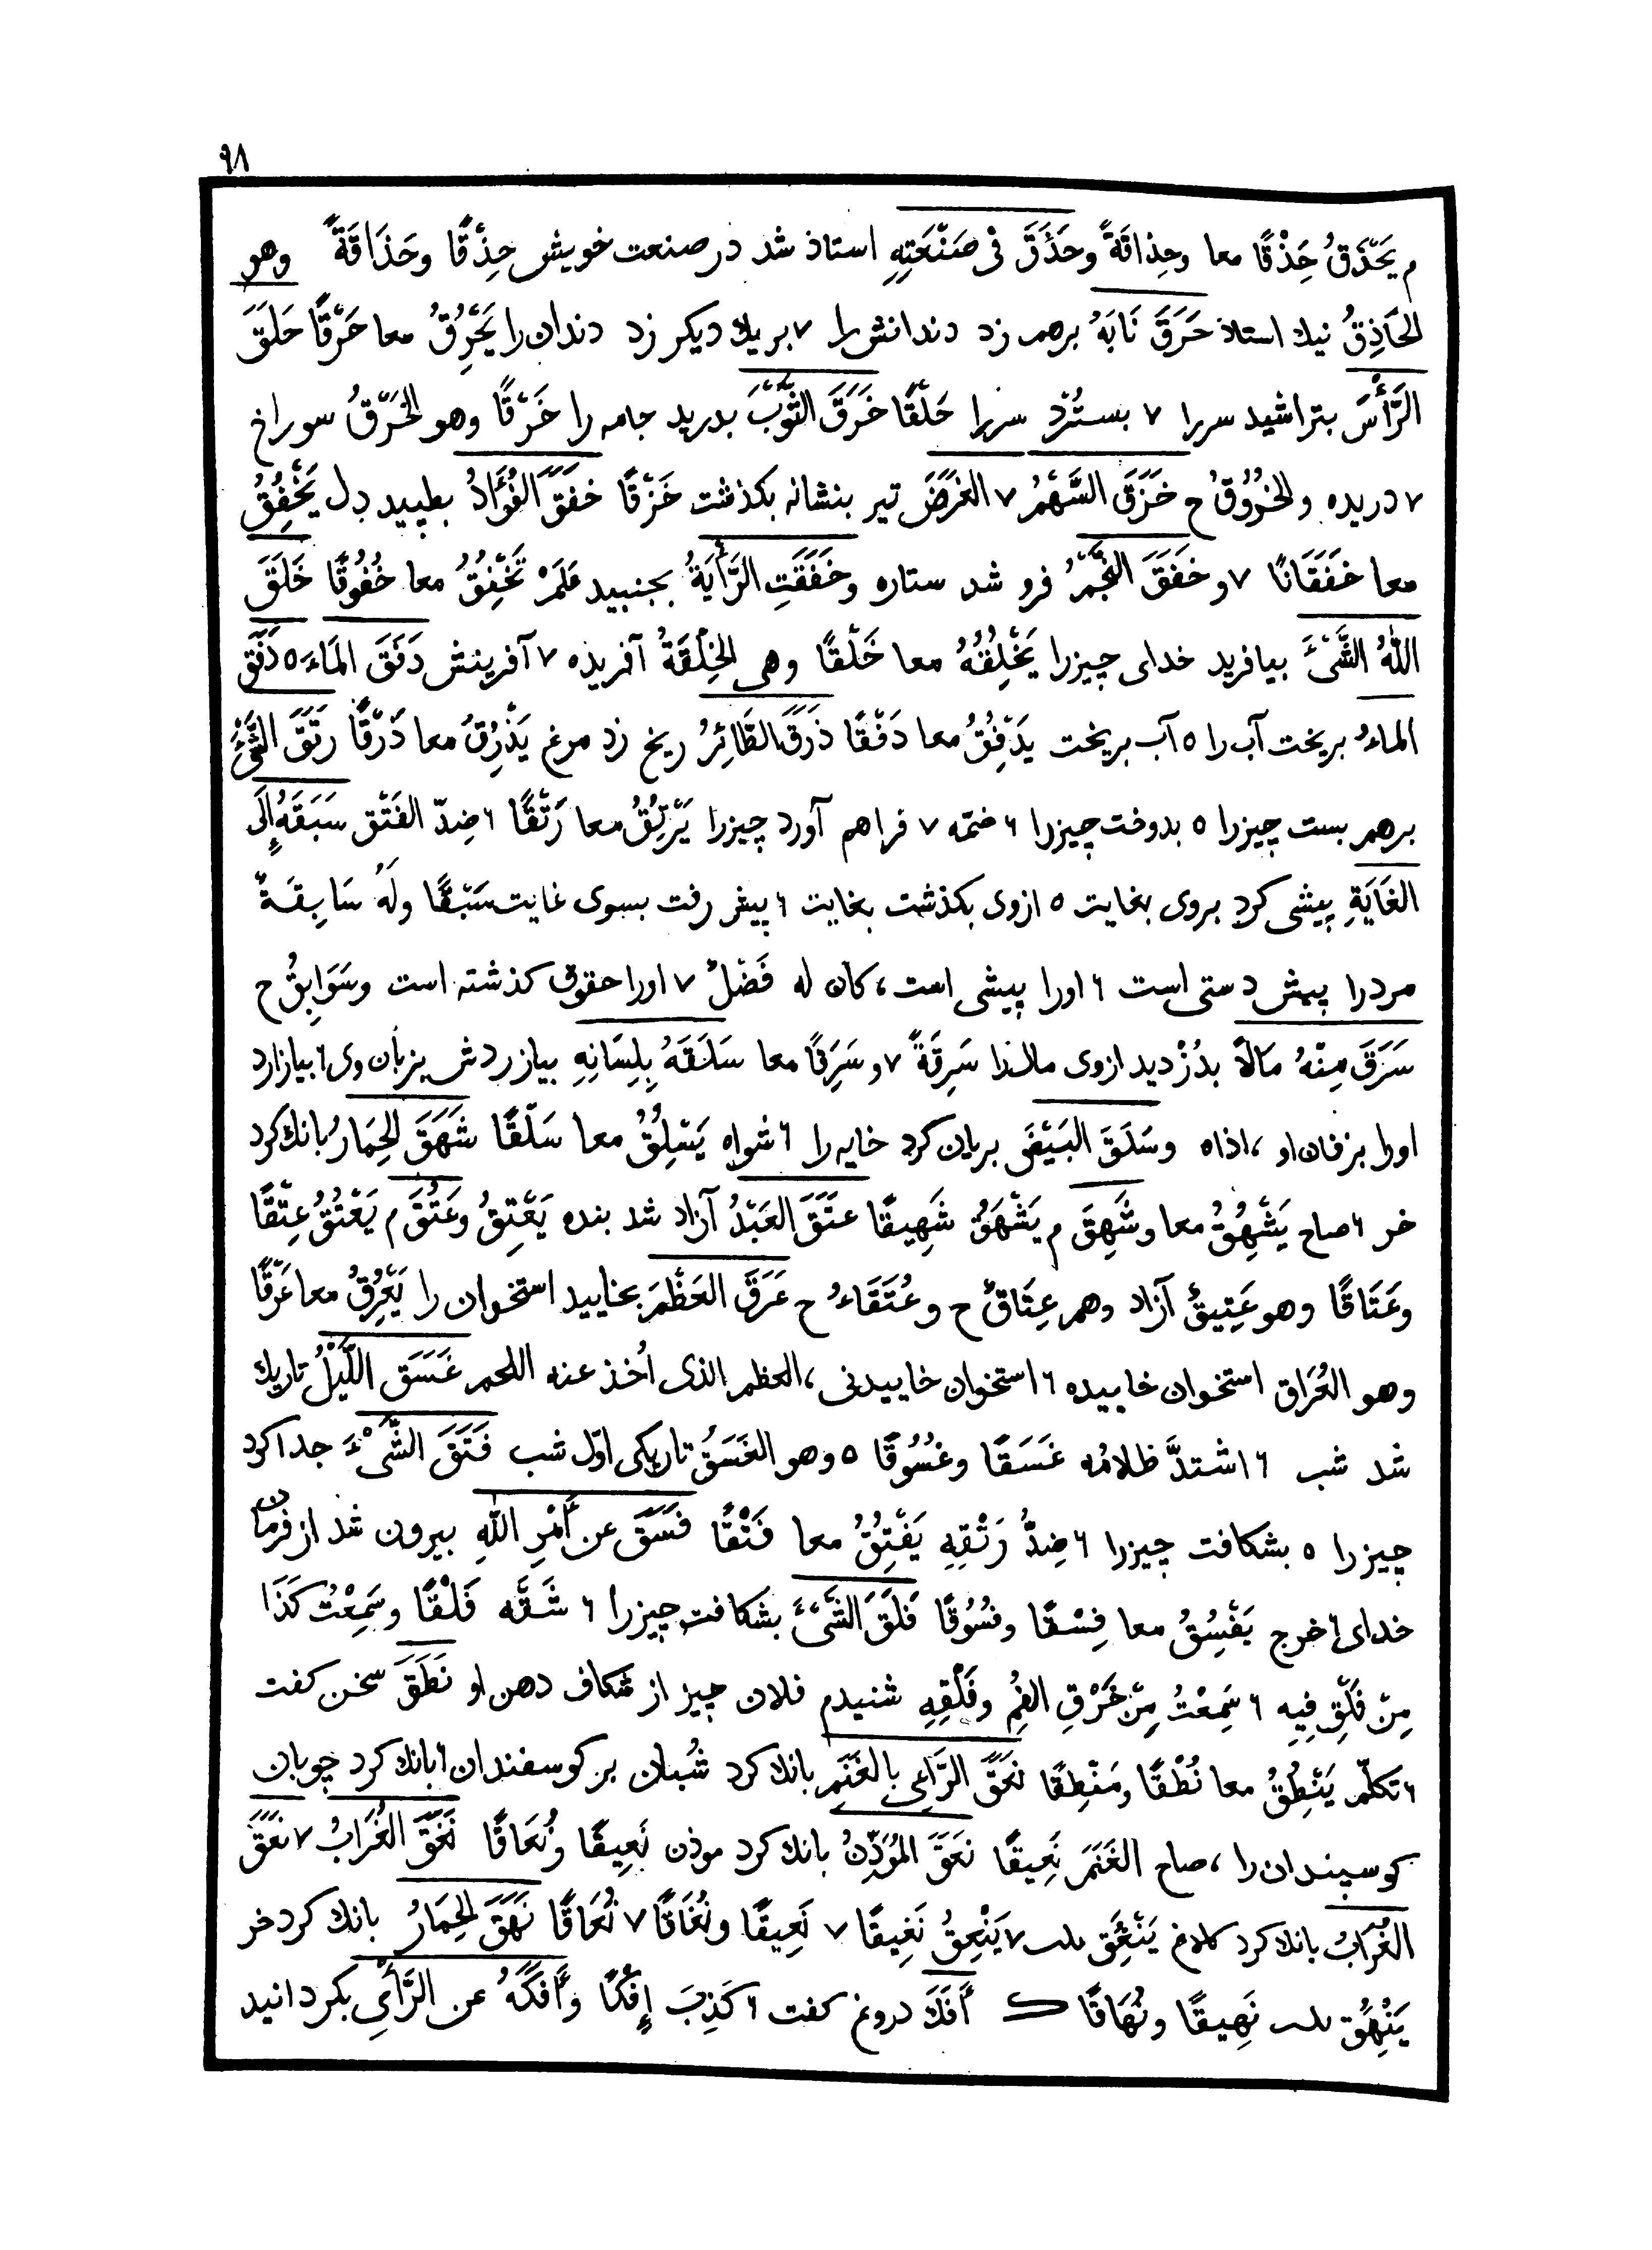 ٩٨
م يَحْذَقُ حِذْقًا معا وحِذاقَةً وحَذَقَ فِى صَنْعَتِهِ استاذ شد در صنعت خويش حِذْقًا وحَذَاقَةً وهو
الحَاذِقُ نيك استاذ حَرَقَ نَابَهُ برهم زد دندانش را ٧ بر يك ديكر زد دندان را يَحْرِقُ معا حَرْقًا حَلَقَ
الرَّأْسَ بتراشيد سررا ٧ بسترد سررا حَلْقًا خَرَقَ الثَّوْبَ بدريد جامه را خَرْقًا وهو الخَرْقُ سوراخ
٧ دريده والخُرُوقُ ح خَزَقَ السَّهْمُ ٧ الغَرَضَ تير بنشانه بكذشت خَزْقًا خفَقَ الفُؤَادُ بطپيد دل يَخْفِقُ
معا خفَقَانًا ٧ وخفَقَ النَّجْمُ فرو شد ستاره وخفَقَتِ الرَّأيَةُ بجنبيد عَلَمْ تَخْفِقُ معا خُفُوقًا خَلَقَ
اللهُ الشَّىْءَ بيافريد خداى چيزرا يَخْلِقُهُ معا خَلْقًا وهى الخِلْقَةُ آفريده ٧ آفرينش دَفَقَ المَاءَ ٥ دَفَقَ
الماءُ بريخت آب را ٥ آب بريخت يَدْفِقُ معا دَفْقًا ذَرَقَ الطَّائِرُ ريخ زد مرغ يَذْرِقُ معا ذَرْقًا رَتَقَ الشَّىْءَ
برهم بست چيزرا ٥ بدوخت چيزرا ٦ ضمّه ٧ فراهم آورد چيزرا يَرْتِقُ معا رَتْقًا ٦ ضِدّ الفَتْق سَبَقَهُ إِلَى
الغَايَةِ پيشى كرد بروى بغايت ٥ ازوى بكذشت بغايت ٦ پيش رفت بسوى غايت سَبْقًا ولَهُ سَابِقَةٌ
مردرا پيش دستى است ٦ اورا پيشى است، كان له فَضْلٌ ٧ اورا حقوق كذشته است وسَوَابِقُ ح
سَرَقَ مِنْهُ مَالًا بدُزْديد ازوى مال را سَرِقَةً ٧ وسَرِقًا معا سَلَقَهُ بِلِسَانِهِ بيازردش بزبان وى ٦ بيازارد
اورا بزفان او، اذاه وسَلَقَ البَيْضَ بريان كرد خايه را ٦ شواه يَسْلِقُ معا سَلْقًا شَهَقَ الحِمَارُ بانك كرد
خر ٦ صاح يَشْهِقُ معا وشَهِقَ م يَشْهَقُ شَهِيقًا عتَقَ العَبْدُ آزاد شد بنده يَعْتِقُ وعَتُقَ م يَعْتُقُ عِتْقًا
وعَتَاقًا وهو عَتِيقٌ آزاد وهم عِتَاقٌ ح وعُتَقَاءُ ح عَرَقَ العَظْمَ بخاييد استخوان را يَعْرِقُ معا عَرْقًا
وهو العُرَاق استخوان خاييده ٦ استخوان خاييدنى، العظم الذى أُخذ عنه اللحم غَسَقَ اللَّيْلُ تاريك
شد شب ٦ اشتدَّ ظلامُه غَسَقًا وغُسُوقًا ٥ وهو الغَسَقُ تاريكى اوّل شب فَتَقَ الشَّىْءَ جدا كرد
چيزرا ٥ بشكافت چيزرا ٦ ضِدُّ رَتْقِهِ يَفْتِقُ معا فَتْقًا فسَقَ عن أَمْرِ اللهِ بيرون شد از فرمان
خداى ٦ خرج يَفْسِقُ معا فِسْقًا وفُسُوقًا فَلَقَ الشَّىْءَ بشكافت چيزرا ٦ شَقَّه فَلْقًا وسَمِعْتُ كَذَا
مِنْ فَلْقِ فِيهِ ٦ سَمِعْتُ مِنْ خَرْقِ الفِمِ وفَلْقِهِ شنيدم فلان چيز از شكاف دهن او نَطَقَ سخن كفت
٦ تكلّم يَنْطِقُ معا نُطْقًا ومَنْطِقًا نعَقَ الرَّاعِى بالغَنَمِ بانك كرد شُبان بر كوسفندان ٦ بانك كرد چوپان
كوسپندان را، صاح الغَنَمَ نَعِيقًا نعَقَ المُؤَذِّنُ بانك كرد موذن نَعِيقًا ونُعَاقًا نَغَقَ الغُرَابُ ٧ نعَقَ
الغُرَابُ بانك كرد كلاغ يَنْغِقُ ٧ يَنْعِقُ نَغِيقًا ٧ نَعِيقًا ونُغَاقًا ٧ نُعَاقًا نَهَقَ الحِمَارُ بانك كرد خر
يَنْهِقُ نَهِيقًا ونُهَاقًا ك أَفَكَ دروغ كفت ٦ كَذِبَ إِفْكًا وأَفَكَهُ عن الرَّأْىِ بكردانيد